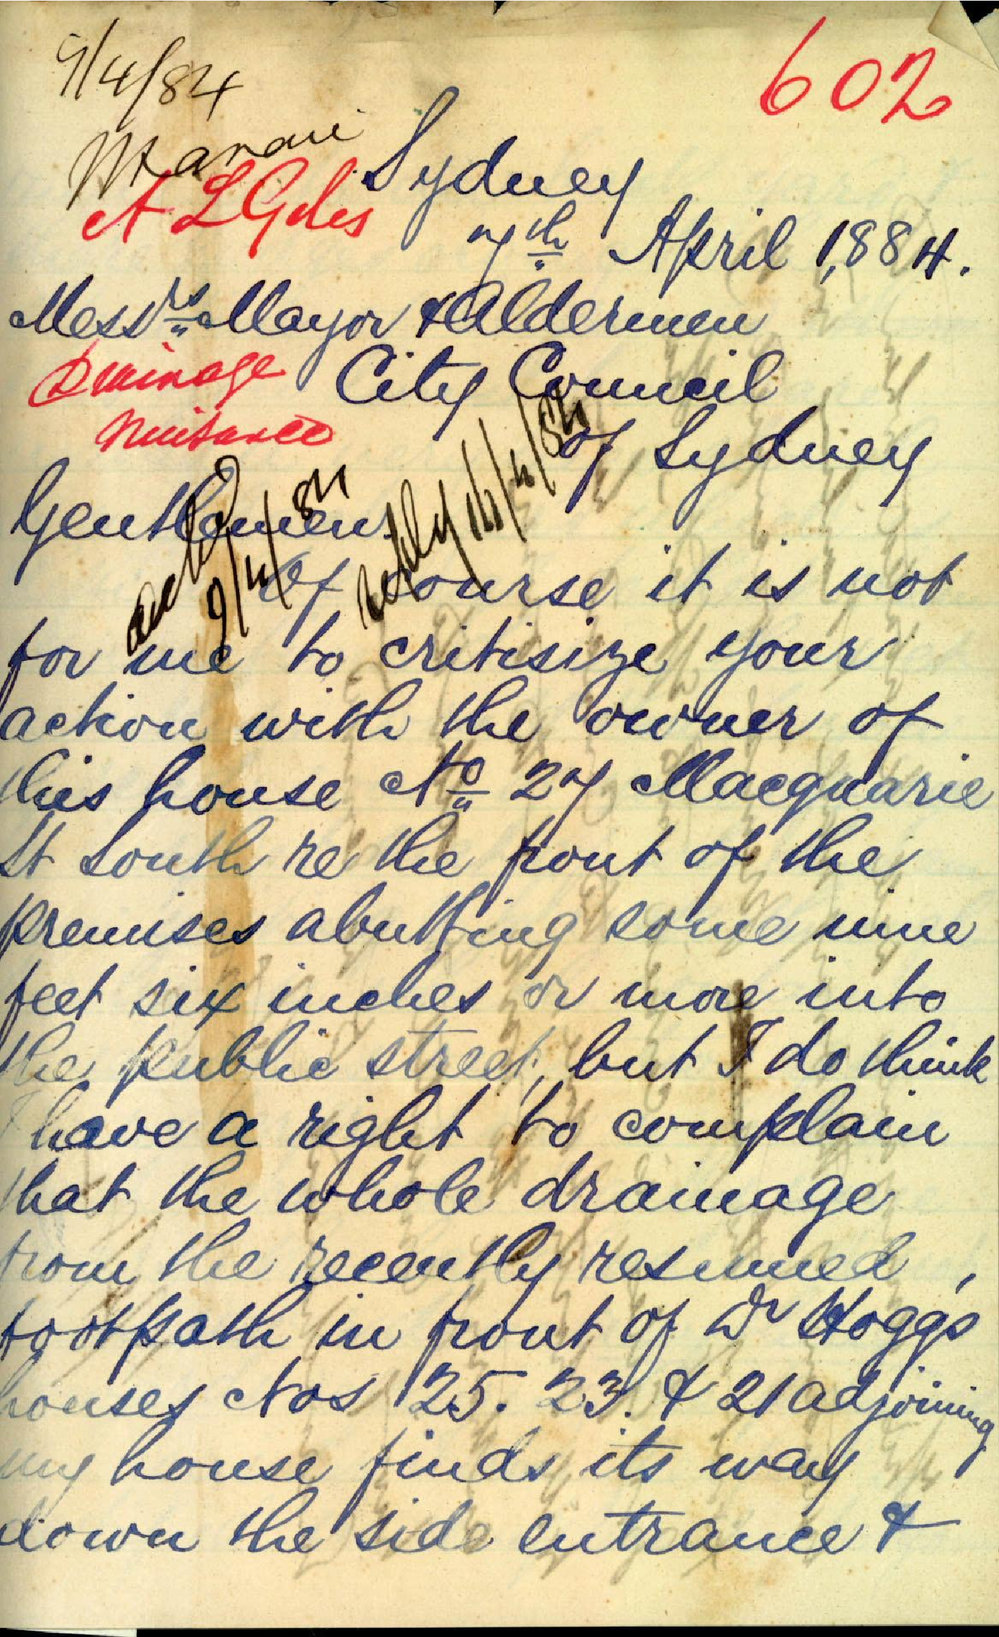 9/4/84
602
A L Giles
Sydney
7th April 1,884.
Messrs Mayor & Aldermen
Drainage
City Council
Nuisance
of Sydney
Gentlemen
9/4/84
reply 16/4/84
Of course it is not
for me to critisize your
action with the owner of
this house No 27 Macquarie
St South re the front of the
premises abutting some nine
feet six inches or more into
the public street, but I do think
I have a right to complain
that the whole drainage
from the recently resumed,
footpath in front of Dr Hoggs
houses Nos 25. 23. & 21 adjoining
my house finds its way
down the side entrance &